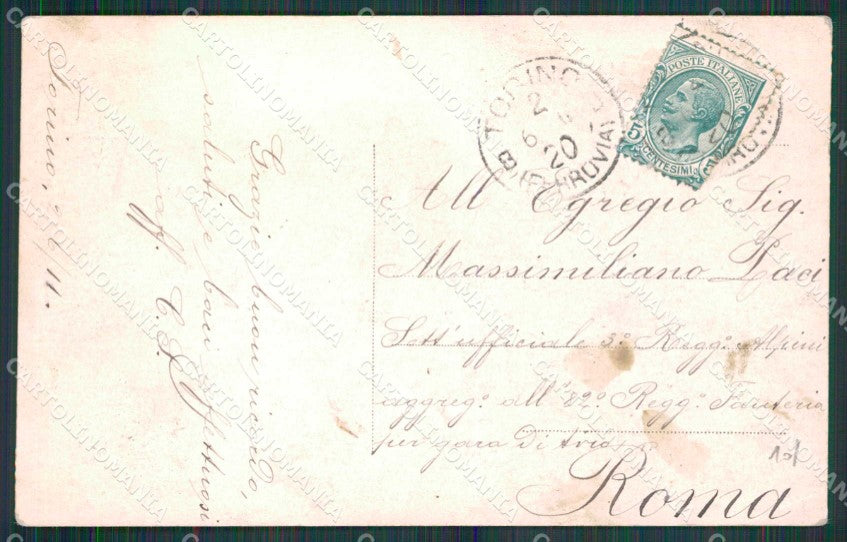 Torino, 2/6 11.
Grazie, buon ricordo,
saluti e baci affettuosi
aff. C.
TORINO
2 6
20
FERROVIA
POSTE ITALIANE
5 CENTESIMI
All Egregio Sig.
Massimiliano Paci
Sott'ufficiale 3° Regg° Alpini
aggreg° all' 82° Regg° Fanteria
per gara di tiro
Roma
10/
CARTOLINOMANIA